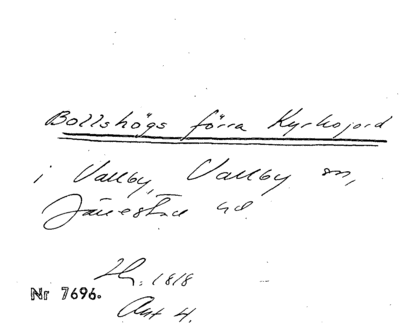 Bollshögs förra Kyrkojord
i Vallby, Vallby sn,
Järrestad hd
Zh: 1818
Nr 7696.
Akt 4.